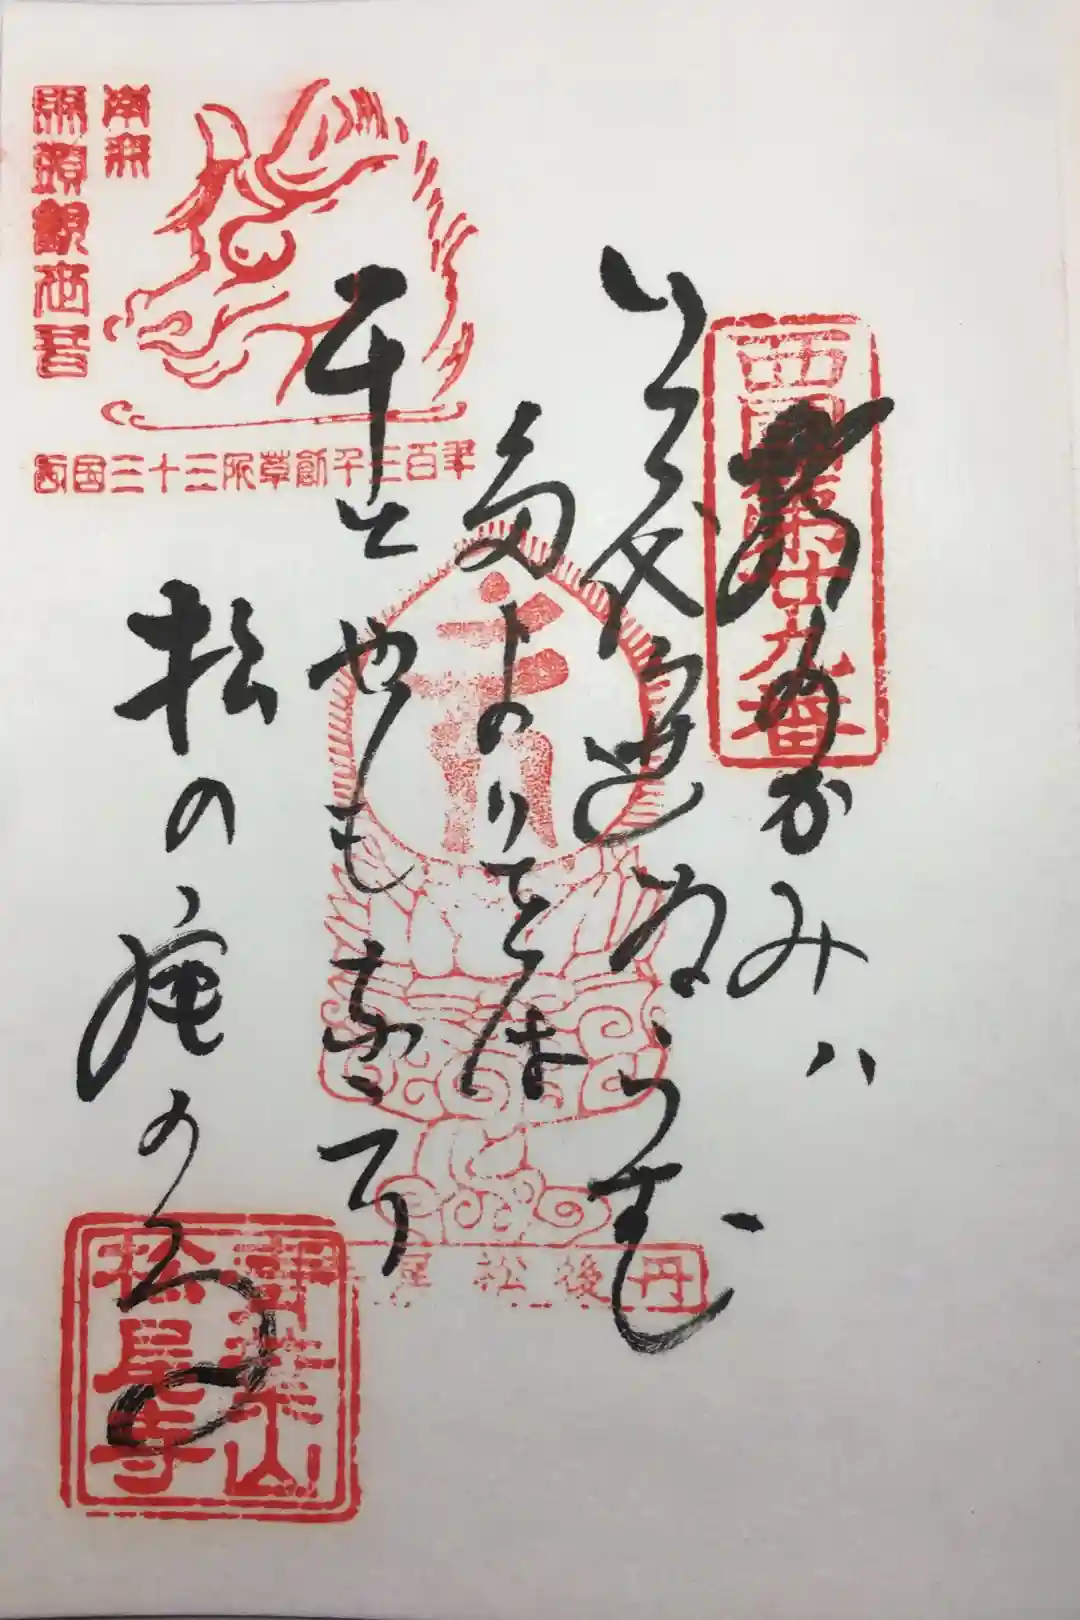 西国第廿九番
そのかみハ
いく代遍ぬらむ
多よりをは
千とせやも
松の尾の
南無
馬頭観世音
西国三十三所草創千三百年
丹後松尾
青葉山
松尾寺